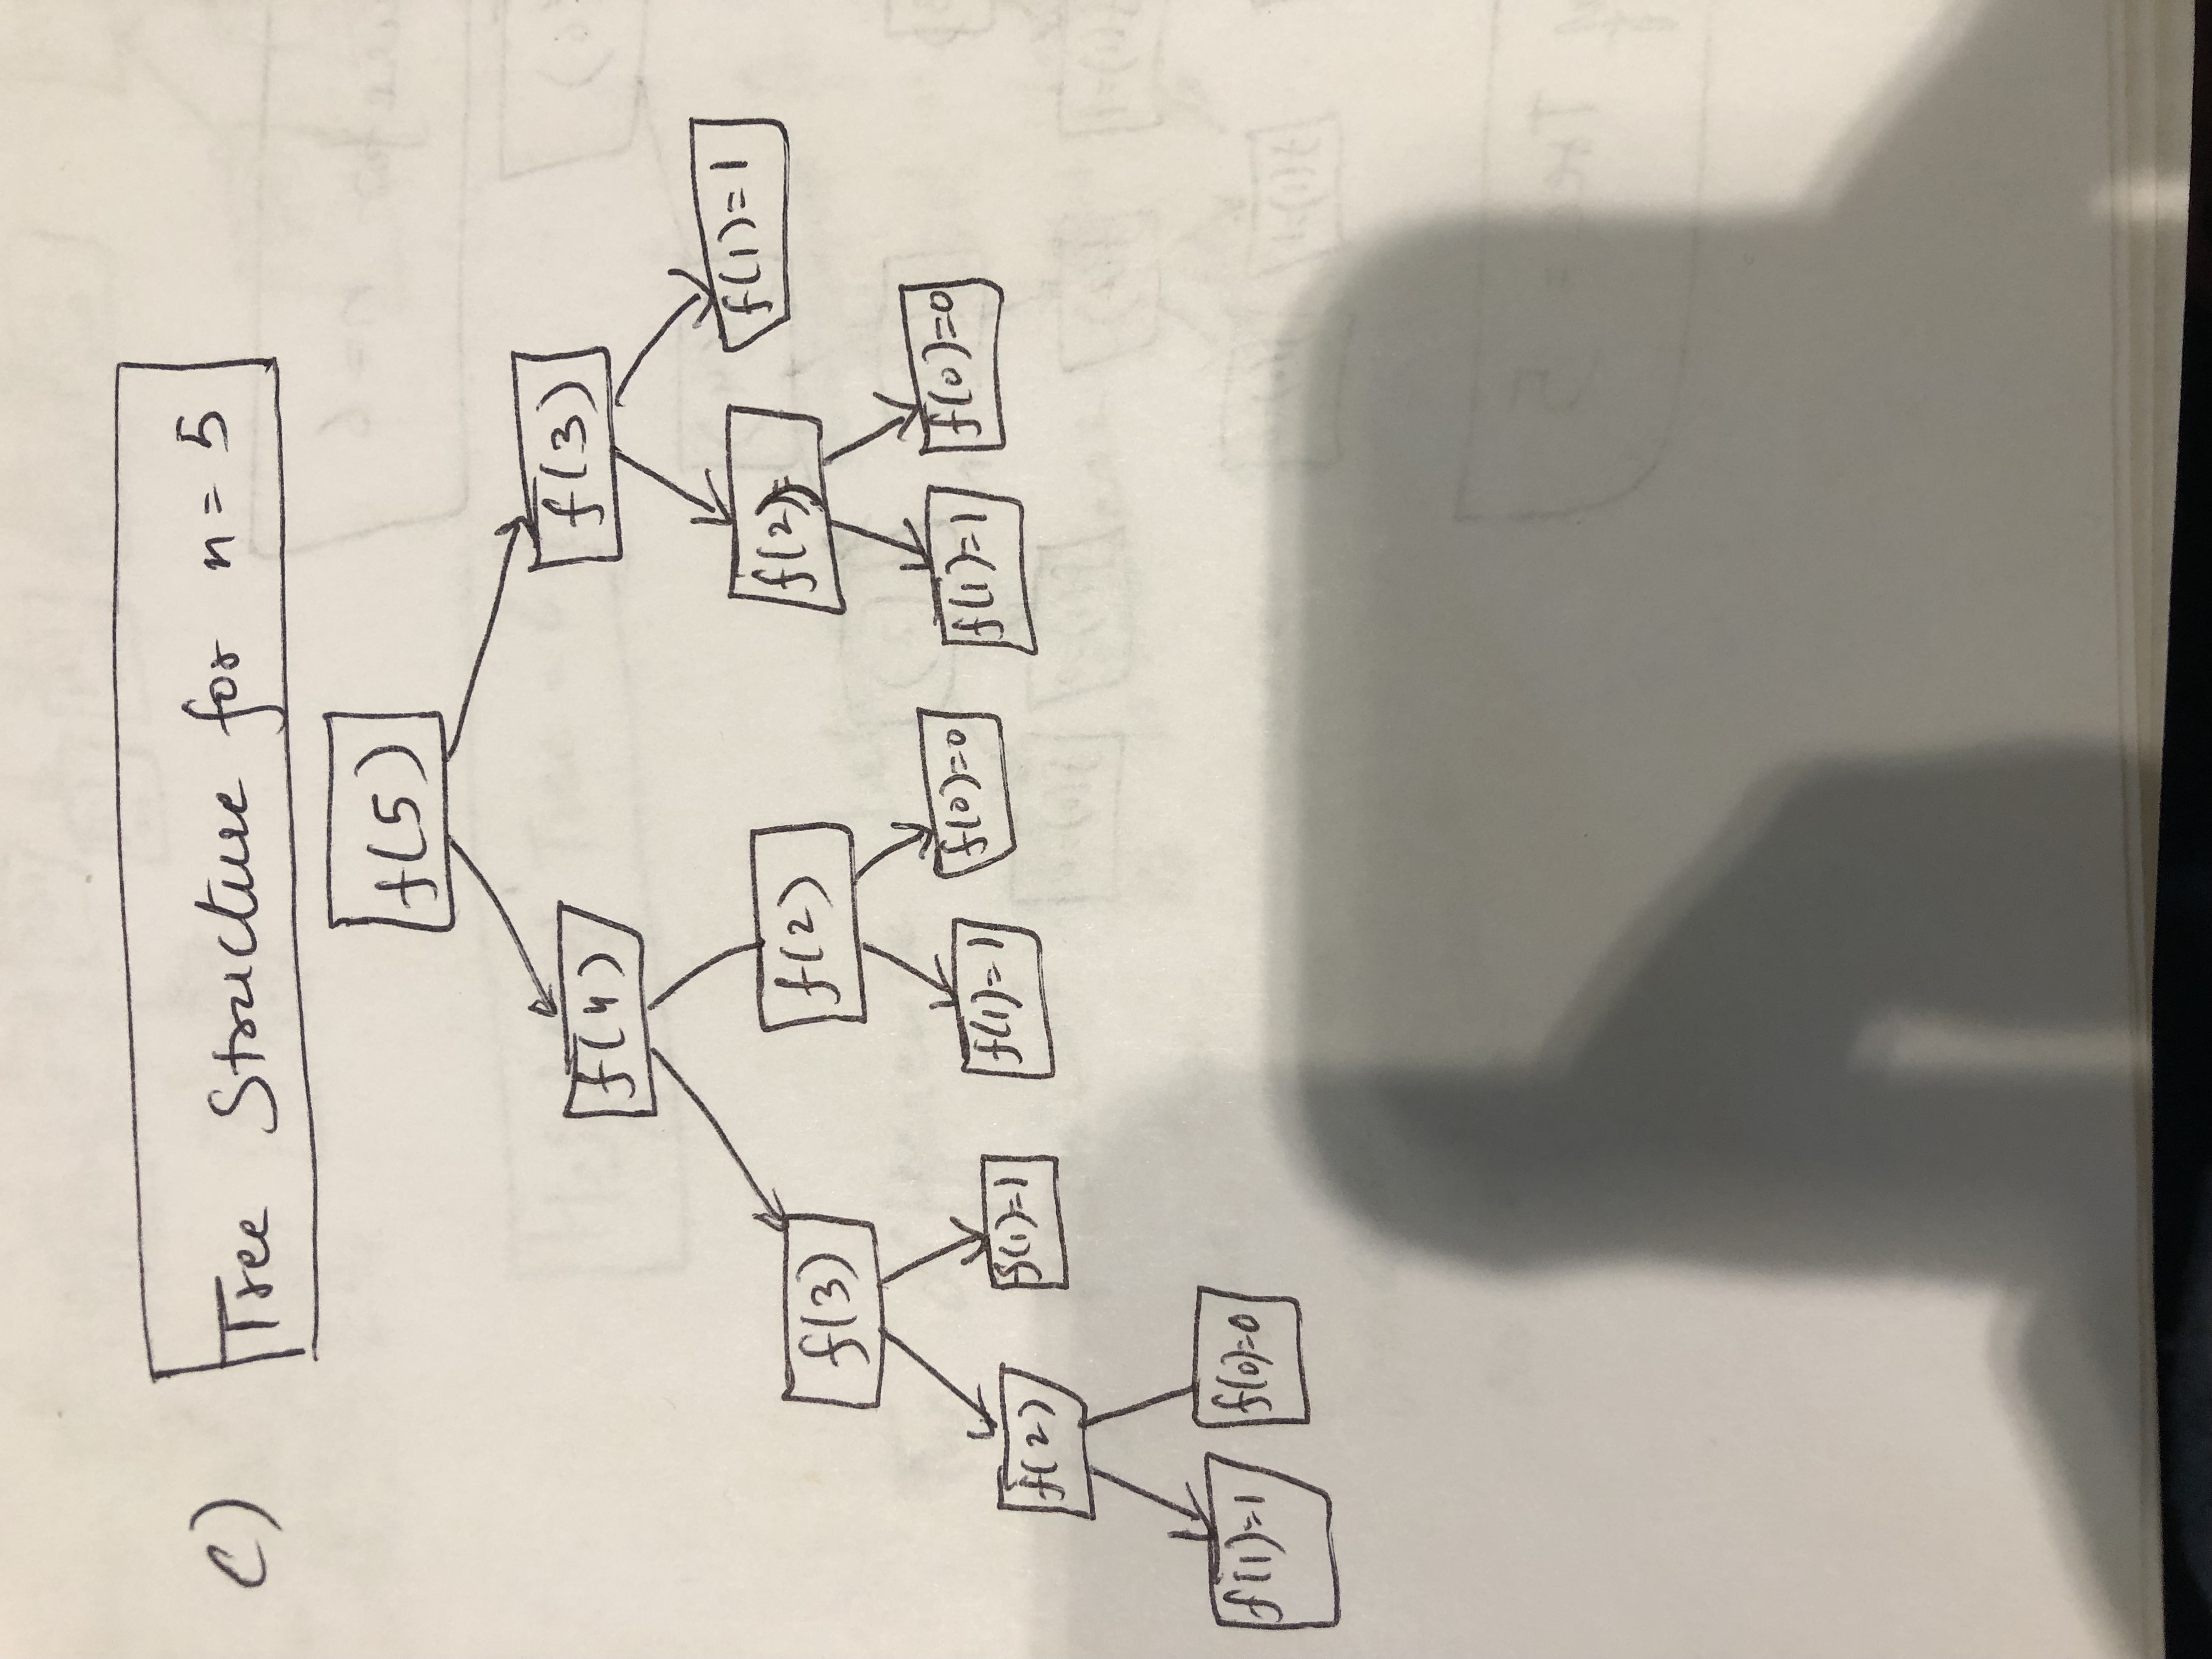 c) Tree Structure for n = 5
f(5)
f(4) f(3)
f(3) f(2) f(2)= f(1)=1
f(2) f(1)=1 f(1)=1 f(0)=0 f(1)=1 f(0)=0
f(1)=1 f(0)=0